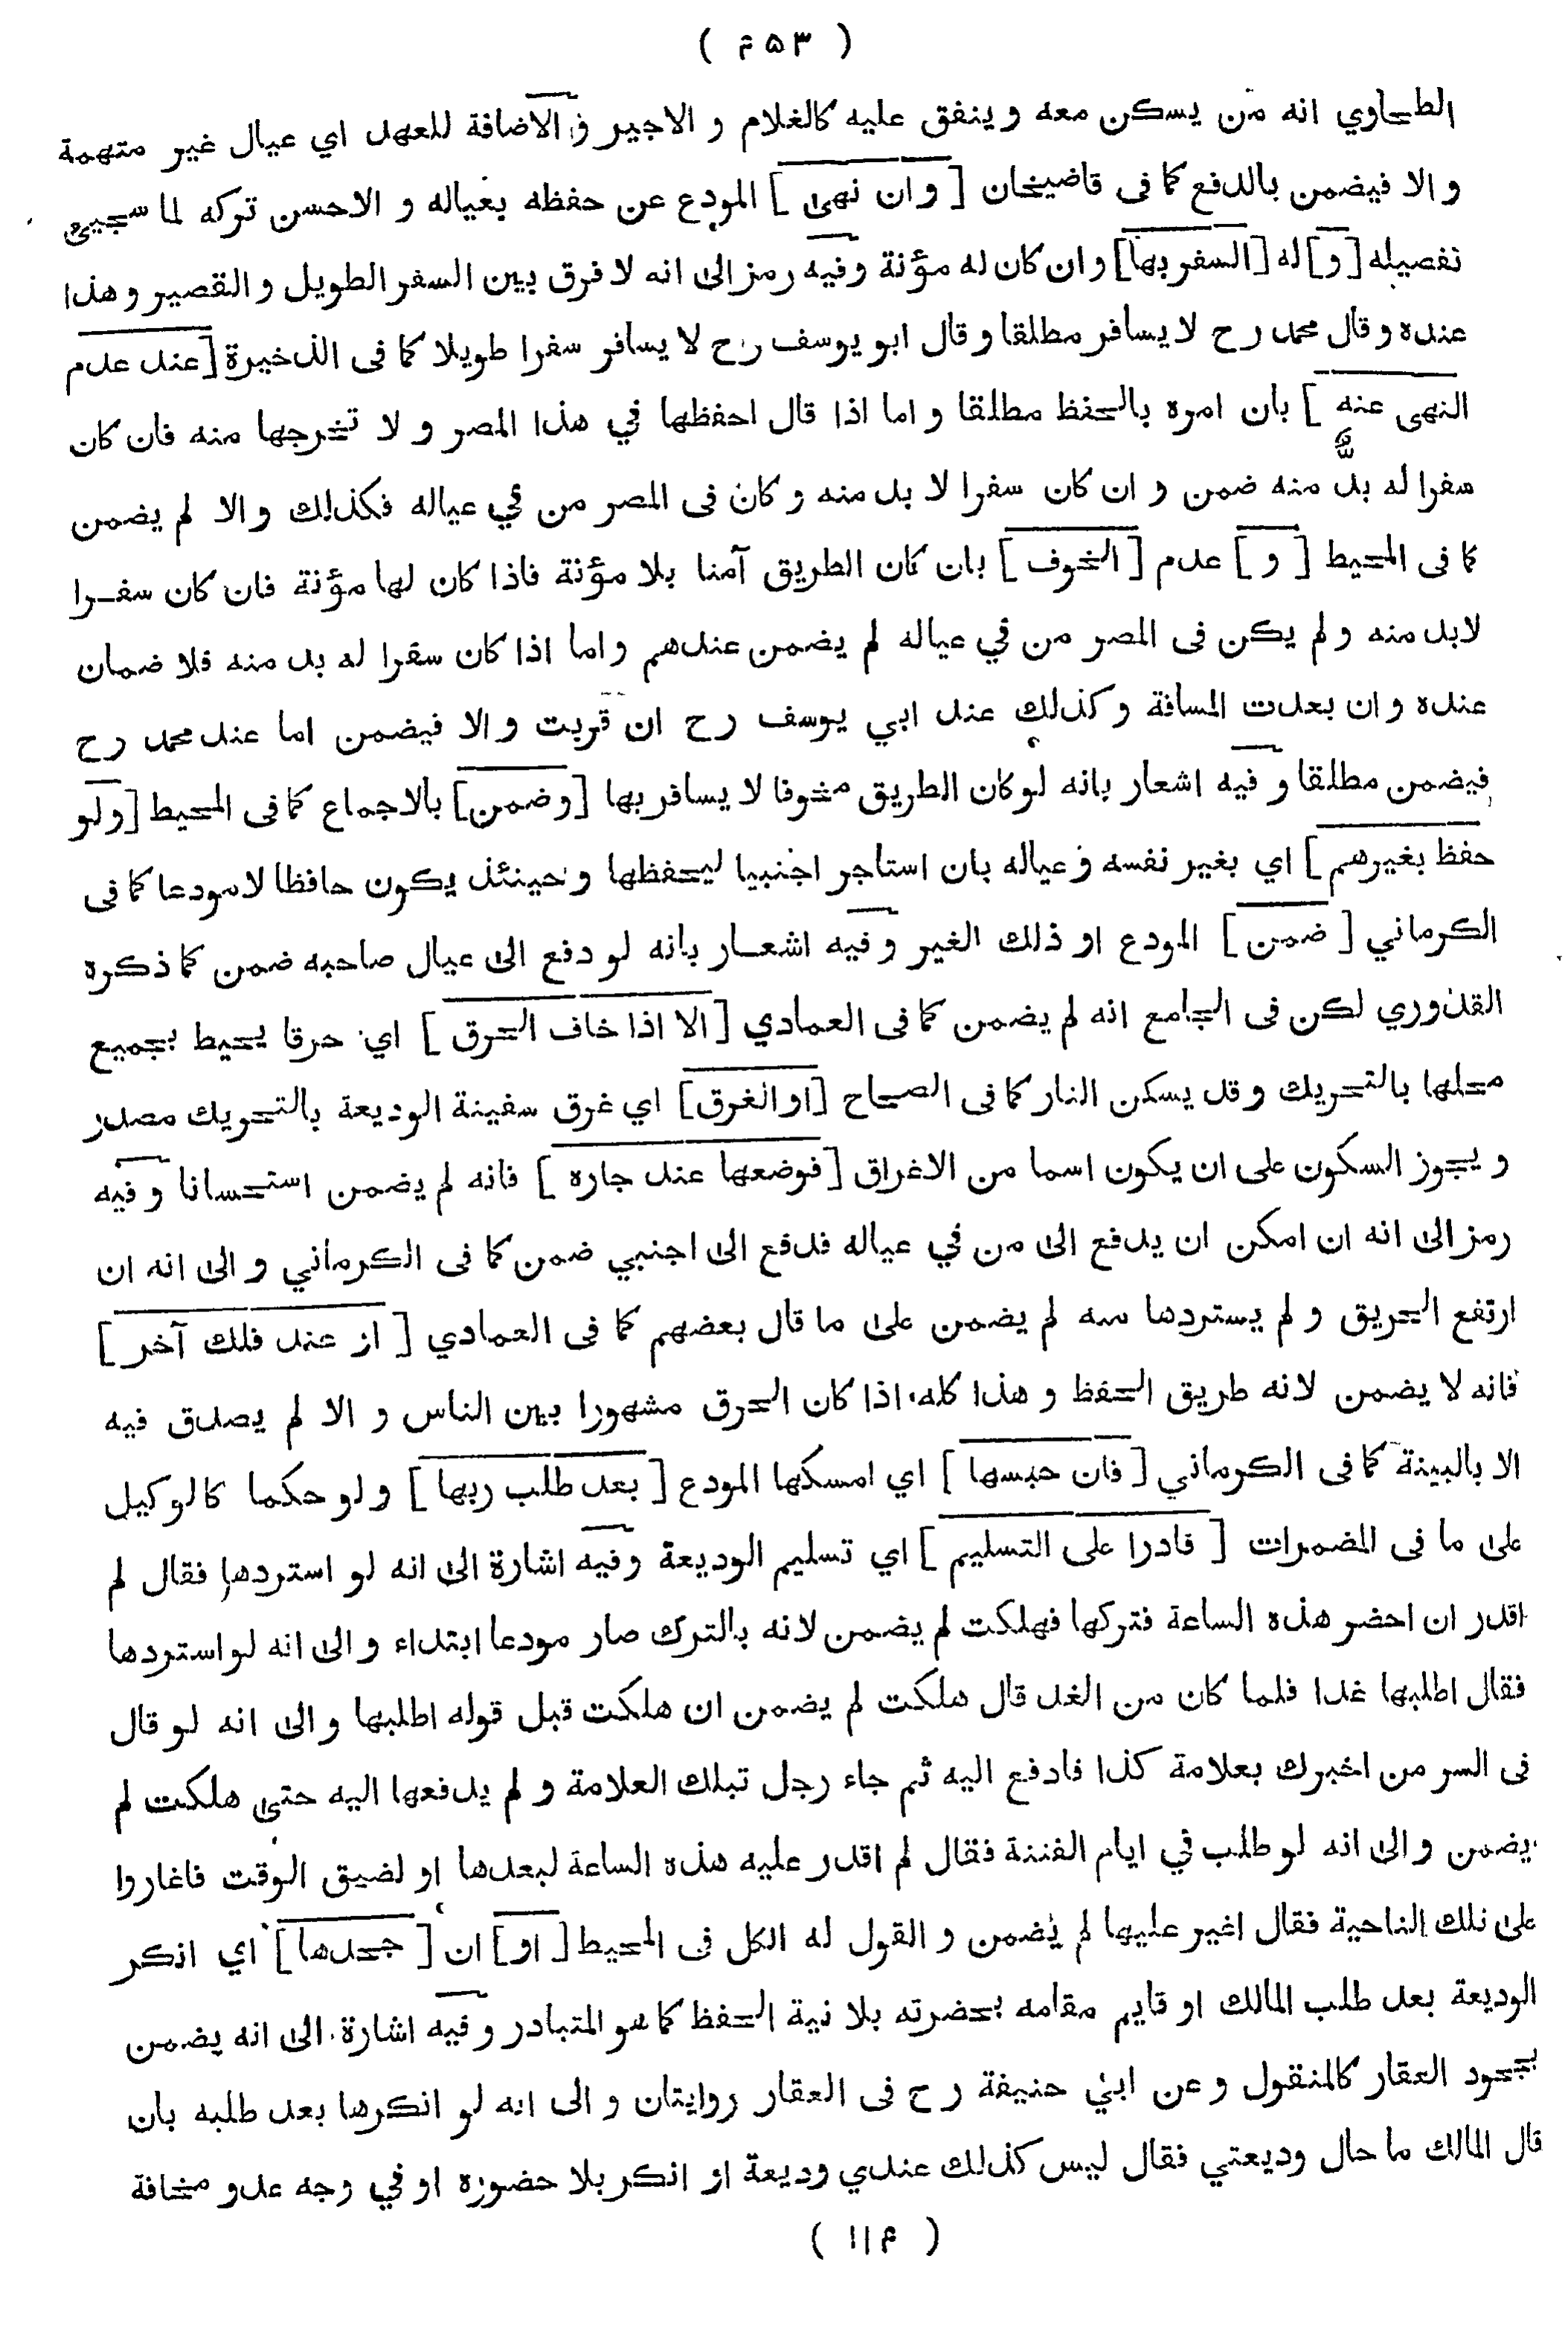 ( ۴۵۳ )
الطحاوي انه من يسكن معه و ينفق عليه كالغلام و الاجير و الاضافة للعهد اي عيال غير متهمة
و الا فيضمن بالدفع كما فى قاضيخان [ و ان نهى ] المودع عن حفظه بعياله و الاحسن تركه لما سيجيئ
تفصيله [ و ] له [ السفر بها ] و ان كان له مؤنة و فيه رمز الى انه لا فرق بين السفر الطويل و القصير و هذا
عنده و قال محمد رح لا يسافر مطلقا و قال ابو يوسف رح لا يسافر سفرا طويلا كما فى الذخيرة [ عند عدم
النهى عنه ] بان امره بالحفظ مطلقا و اما اذا قال احفظها في هذا المصر و لا تخرجها منه فان كان
سفرا له بد منه ضمن و ان كان سفرا لا بد منه و كان فى المصر من في عياله فكذلك و الا لم يضمن
كما فى المحيط [ و ] عدم [ الخوف ] بان كان الطريق آمنا بلا مؤنة فاذا كان لها مؤنة فان كان سفرا
لابد منه و لم يكن فى المصر من في عياله لم يضمن عندهم و اما اذا كان سفرا له بد منه فلا ضمان
عنده و ان بعدت المسافة و كذلك عند ابي يوسف رح ان قربت و الا فيضمن اما عند محمد رح
فيضمن مطلقا و فيه اشعار بانه لو كان الطريق مخوفا لا يسافر بها [ و ضمن ] بالاجماع كما فى المحيط [ و لو
حفظ بغيرهم ] اي بغير نفسه و عياله بان استاجر اجنبيا ليحفظها و حينئذ يكون حافظا لا مودعا كما فى
الكرماني [ ضمن ] المودع او ذلك الغير و فيه اشعار بانه لو دفع الى عيال صاحبه ضمن كما ذكره
القدوري لكن فى الجامع انه لم يضمن كما فى العمادي [ الا اذا خاف الحرق ] اي حرقا يحيط بجميع
محلها بالتحريك و قد يسكن النار كما فى الصحاح [ او الغرق ] اي غرق سفينة الوديعة بالتحريك مصدر
و يجوز السكون على ان يكون اسما من الاغراق [ فوضعها عند جاره ] فانه لم يضمن استحسانا و فيه
رمز الى انه ان امكن ان يدفع الى من في عياله فدفع الى اجنبي ضمن كما فى الكرماني و الى انه ان
ارتفع الحريق و لم يستردها منه لم يضمن على ما قال بعضهم كما فى العمادي [ او عند فلك آخر ]
فانه لا يضمن لانه طريق الحفظ و هذا كله اذا كان الحرق مشهورا بين الناس و الا لم يصدق فيه
الا بالبينة كما فى الكرماني [ فان حبسها ] اي امسكها المودع [ بعد طلب ربها ] و لو حكما كالوكيل
على ما فى المضمرات [ قادرا على التسليم ] اي تسليم الوديعة و فيه اشارة الى انه لو استردها فقال لم
اقدر ان احضر هذه الساعة فتركها فهلكت لم يضمن لانه بالترك صار مودعا ابتداء و الى انه لو استردها
فقال اطلبها غدا فلما كان من الغد قال هلكت لم يضمن ان هلكت قبل قوله اطلبها و الى انه لو قال
فى السر من اخبرك بعلامة كذا فادفع اليه ثم جاء رجل تبلك العلامة و لم يدفعها اليه حتى هلكت لم
يضمن و الى انه لو طلب في ايام الفتنة فقال لم اقدر عليه هذه الساعة لبعدها او لضيق الوقت فاغاروا
على تلك الناحية فقال اغير عليها لم يضمن و القول له الكل فى المحيط [ او ] ان [ جحدها ] اي انكر
الوديعة بعد طلب المالك او قايم مقامه بحضرته بلا نية الحفظ كما هو المتبادر و فيه اشارة الى انه يضمن
بجحود العقار كالمنقول و عن ابي حنيفة رح فى العقار روايتان و الى انه لو انكرها بعد طلبه بان
قال المالك ما حال وديعتي فقال ليس كذلك عندي وديعة او انكر بلا حضوره او في وجه عدو مخافة
( ۱۱۴ )